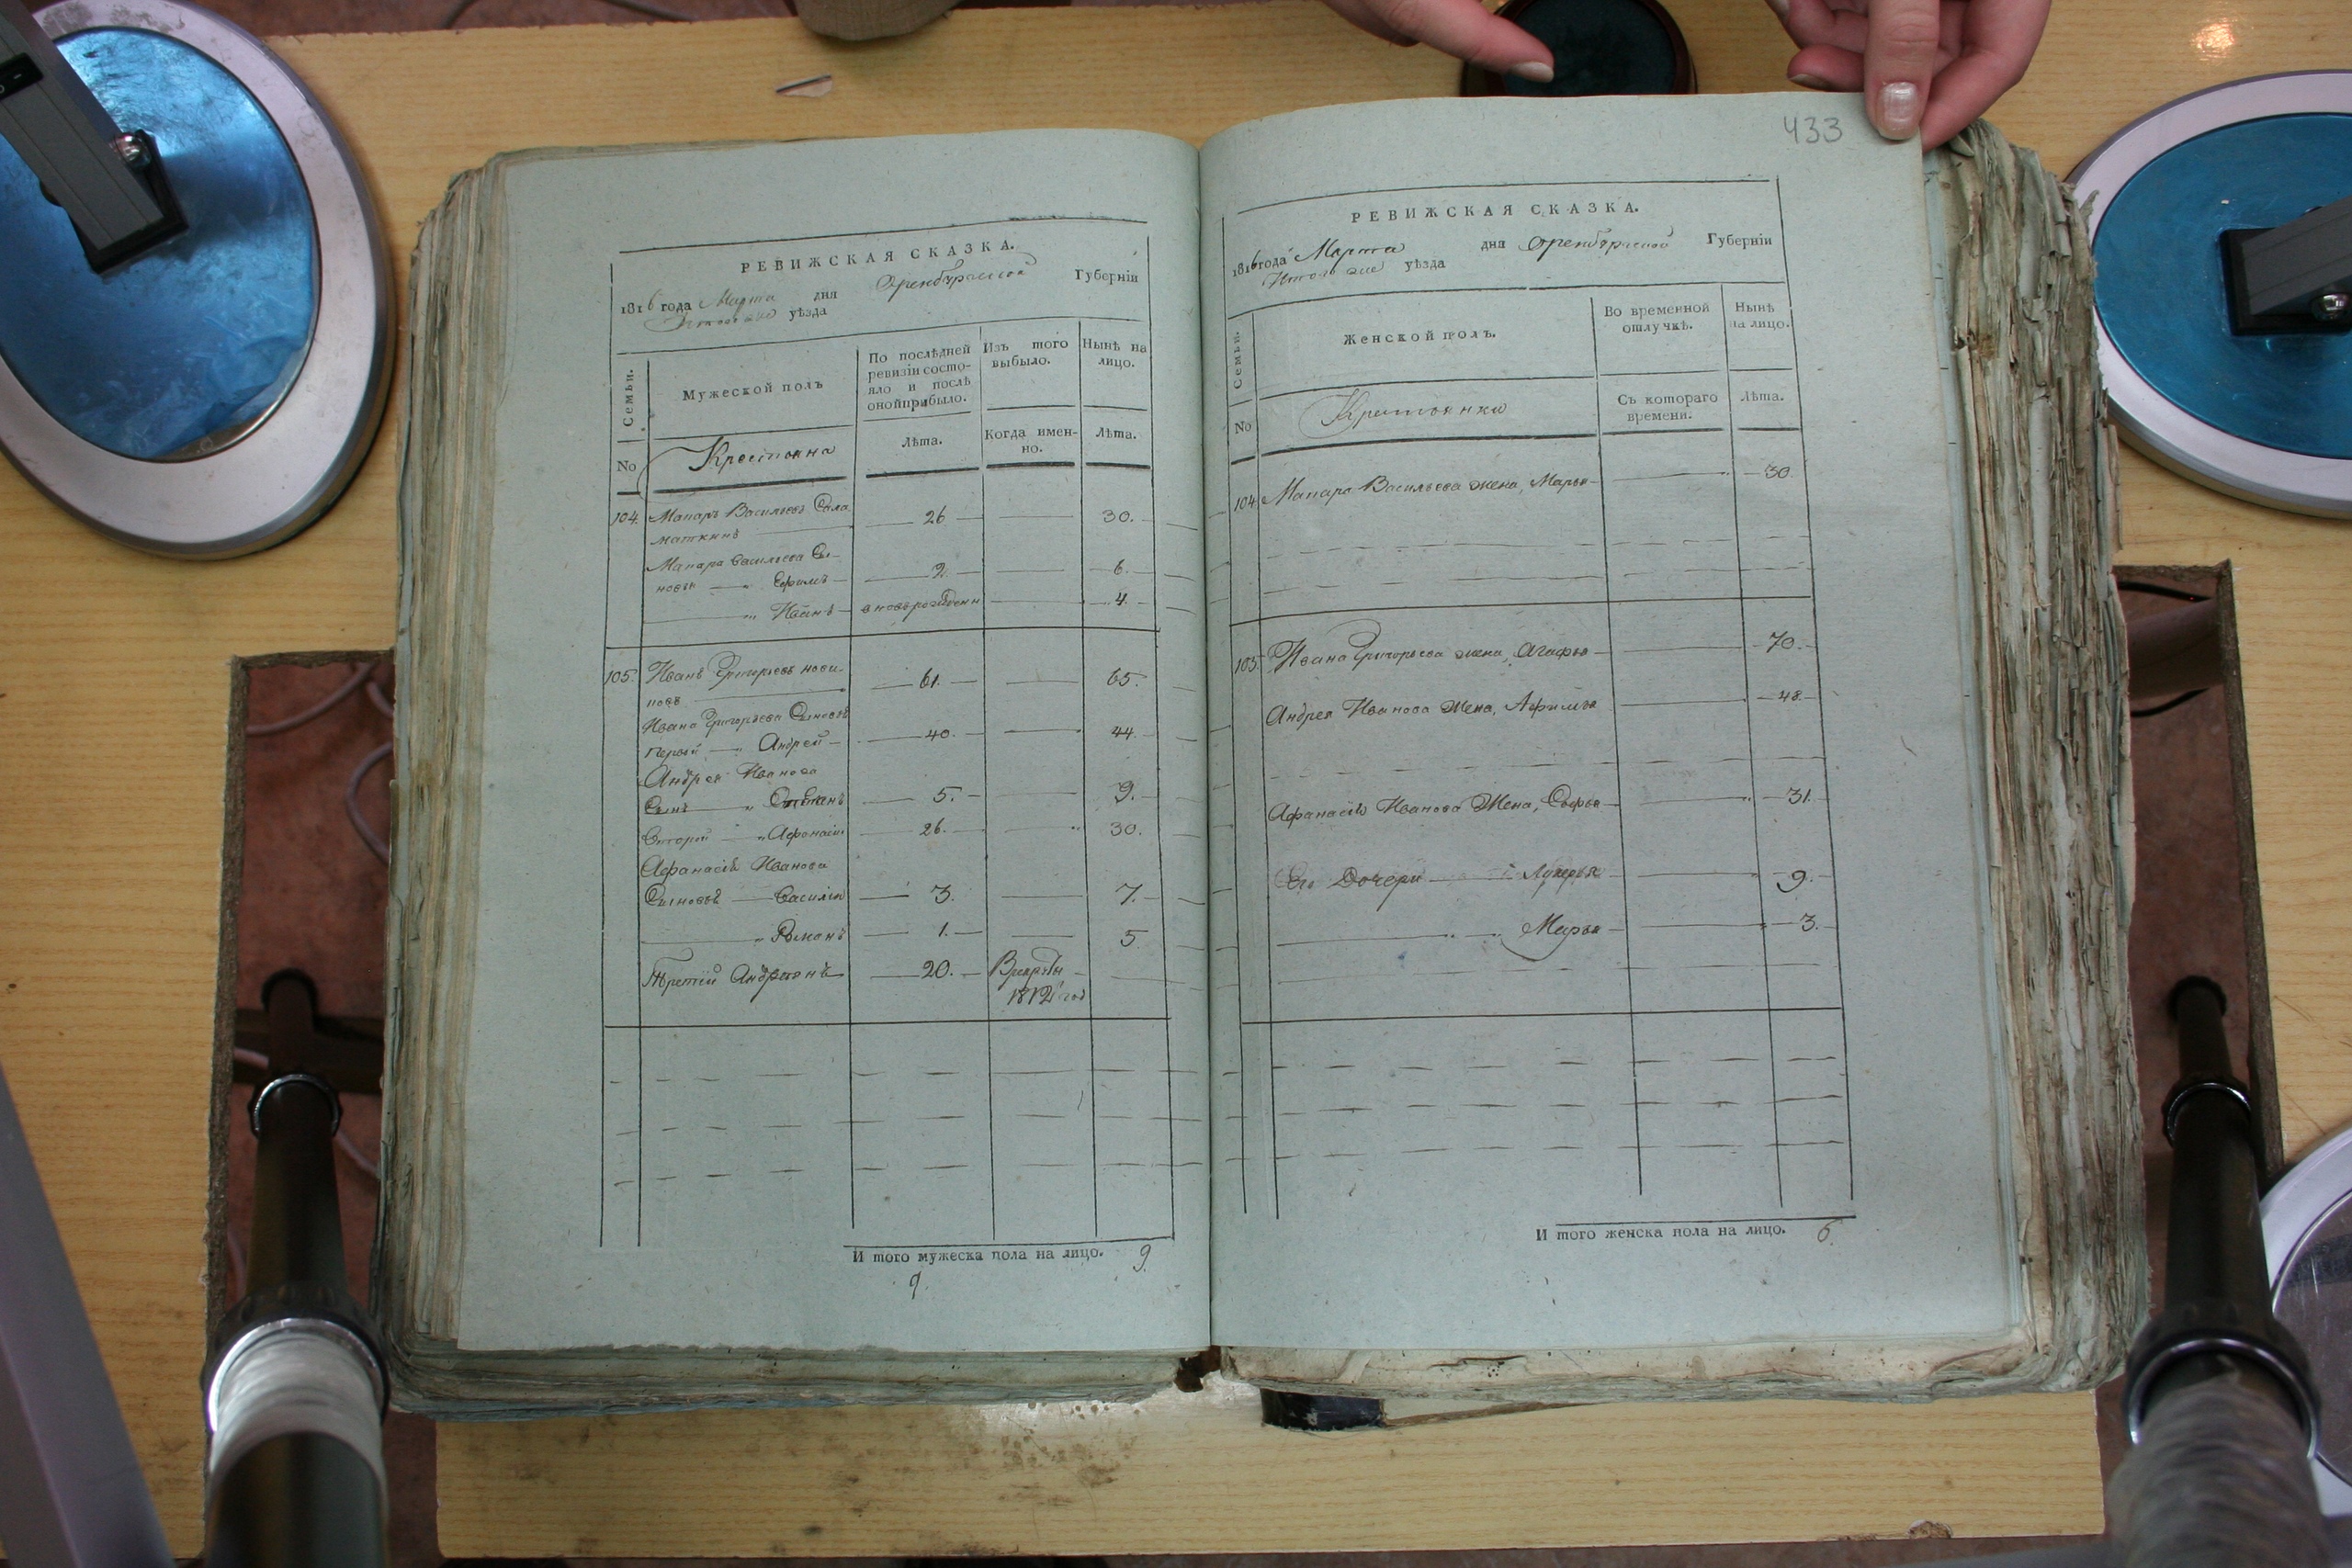 РЕВИЖСКАЯ СКАЗКА.
1816 года Марта дня Оренбургской Губернїи
уѣзда
Семьи.
Мужеской полъ
По послѣдней ревизїи состояло и послѣ оной прибыло.
Изъ того выбыло.
Нынѣ на лицо.
No
Крестьяна
Лѣта.
Когда именно.
Лѣта.
104. Макаръ Васильевъ Сала 26 30.
маткинъ
Макара Васильева Сы-
новья Ефимъ 2 6.
Иванъ вновьрожденн 4.
105. Иванъ Григорьевъ нови- 61. 65.
новъ
Ивана Григорьева Сыновья
первой Андрей 40. 44.
Андрея Иванова
Сынъ Степанъ 5. 9.
Второй Афанасїй 26. 30.
Афанасїя Иванова
Сыновья Василїй 3. 7.
Романъ 1. 5
Третїй Андреянъ 20. Врекруты
1812 год
И того мужеска пола на лицо. 9.
9.
433
РЕВИЖСКАЯ СКАЗКА.
1816 года Марта дня Оренбургской Губернїи
уѣзда
Семьи.
Женской полъ.
Во временной отлучкѣ.
Нынѣ на лицо.
No
Крестьянки
Съ котораго времени.
Лѣта.
104. Макара Васильева жена, Марья 30.
105. Ивана Григорьева жена, Агафья 70.
Андрея Иванова Жена, Афимья 48.
Афанасїя Иванова Жена, Софья 31.
Его Дочери Лукерья 9.
Марья 3.
И того женска пола на лицо. 6.